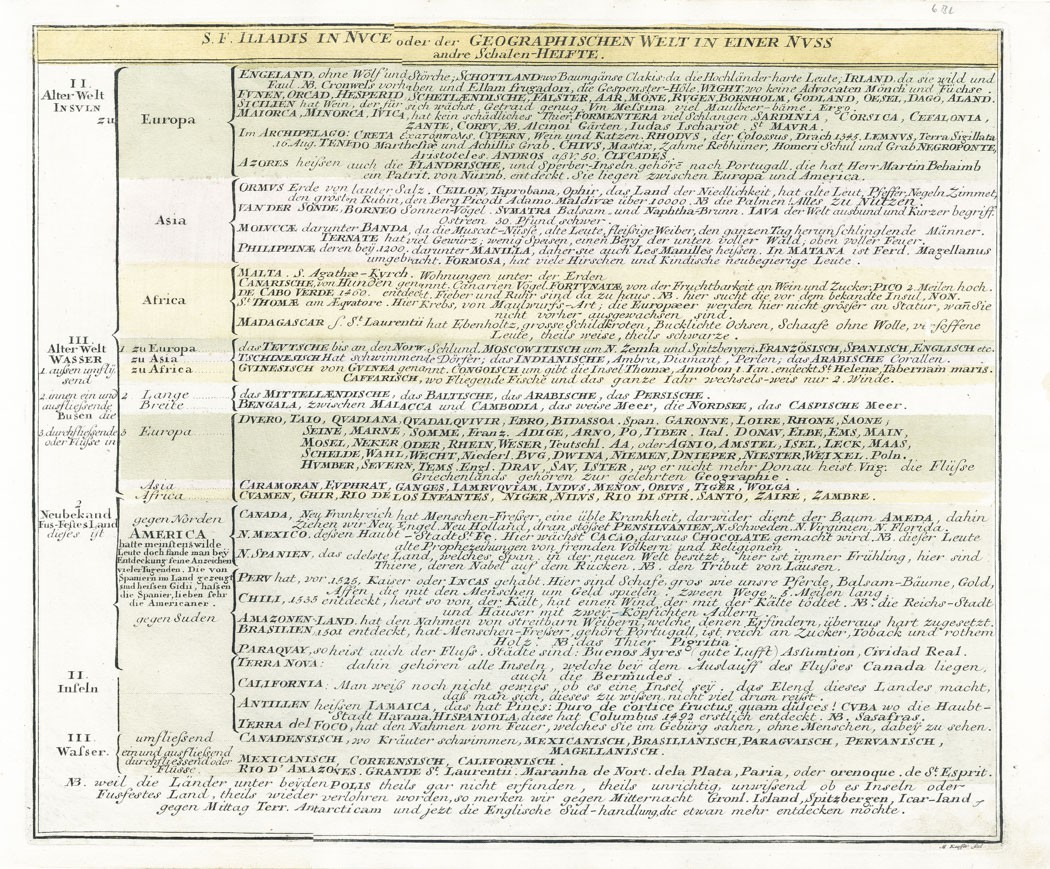 681
S. F. ILIADIS IN NVCE oder der GEOGRAPHISCHEN WELT IN EINER NVSS
andre Schalen-HELFTE.
II.
Alter Welt
INSVLN
zu
Europa
ENGELAND, ohne Wölf und Störche; SCHOTTLAND wo Baumgänse Clakis: da die Hochländer harte Leute, IRLAND, da sie wild und
Faul. NB. Cronwels vorhaben und Ellam frugadori, die Gespenster-Höle. WIGHT, wo keine Advocaten Mönch und Füchse.
FVNEN, ORCAD, HESPERID SCHETLÆNDISCHE, FALSTER, AAR, MONE, RVGEN, BORNHOLM, GODLAND, OESEL, DAGO, ALAND.
SICILIEN hat Wein, der für sich wächst, Getraid genug. Um Messina viel Maulbeer-bäme. Ergo.
MAIORCA, MINORCA, IVICA, hat kein schädliches Thier, FORMENTERA viel Schlangen. SARDINIA, CORSICA, CEFALONIA,
ZANTE, CORFV, NB. Alcinoi Gärten, Iudas Ischariot. St. MAVRA.
Im ARCHIPELAGO: CRETA CIPERN, Wein und Katzen. RHODVS, der Colossus, Drach 1345. LEMNVS, Terra Sigillata
16. Aug. TENEDO Marthesiæ und Achillis Grab. CHIVS, Mastix, Zahme Rebhüner, Homeri Schul und Grab. NEGROPONTE,
Aristoteles. ANDROS a.B.V. 30. CLICADES.
AZORES heissen auch die FLANDRISCHE, und Sperber-Inseln, gehörē nach Portugall, die hat Herr Martin Behaimb
ein Patrit. von Nürnb. entdeckt. Sie liegen zwischen Europa und America.
Asia
ORMVS Erde von lauter Salz. CEILON, Taprobana, Ophir, das Land der Niedlichkeit, hat alte Leut, Pfeffer, Negeln, Zimmet,
den grösten Rubin, den Berg Picodi Adamo. Maldivæ über 10000. NB die Palmen! Alles zu Nutzen.
VANDER SONDE, BORNEO Sonnen-Vögel. SVMATRA Balsam- und Naphtha-Brunn. IAVA der Welt ausbund und Kurzer begriff.
Östreen 30. Pfund schwer.
MOLVCCÆ darunter BANDA, da die Muscat-Nüsse, alte Leute, fleissige Weiber, den ganzen Tag herum schlinglende Männer.
TERNATE hat viel Gewürz; wenig Speisen, einen Berg der unten voller Wald, oben voller Feuer.
PHILIPPINÆ, deren bey 1200. darunter MANILLA, daher sie auch Les Manilles heissen. In MATANA ist Ferd. Magellanus
umgebracht. FORMOSA, hat viele Hirschen und Kindische neubegierige Leute.
Africa
MALTA. S. Agathæ-Kyrch. Wohnungen unter der Erden
CANARISCHE, von Hunden genennt. Canarien Vögel. FORTVNATÆ, von der Fruchtbarkeit an Wein und Zucker. PICO 2. Meilen hoch.
DE CABO VERDE 1460. entdeckt. Fieber und Ruhr sind da zu haus. NB. hier sucht die vor dem bekandte Insul, NON.
St. THOMÆ am Æquatore. Hier Krebs, von Maulwurfs-Art, die Europæer werden hier nicht grösser an Statur, wañ Sie
nicht vorher ausgewachsen sind.
MADAGASCAR s. St. Laurentii hat Ebenholtz, grosse Schildkroten, Bucklichte Ochsen, Schaafe ohne Wolle, versoffene
Leute, theils weise, theils schwarze.
III.
Alter Welt
WASSER.
1. aussen umfli-
send
1 zu Europa
das TEVTSCHE bis an den Norw. Schlund. MOSCOVITISCH um N. Zemla und Spitzbergen. FRANZÖSISCH, SPANISCH, ENGLISCH etc.
zu Asia
TSCHINESISCH Hat schwimmende Dörfer; das INDIANISCHE, Ambra, Diamant, Perlen; das ARABISCHE Corallen.
zu Africa
GVINESISCH von GVINEA genannt. CONGOISCH um gibt die Insel Thomæ, Annobon 1. Ian. endeckt. St. Helenæ, Tabernam maris.
CAFFARISCH, wo Fliegende Fische und das ganze Iahr wechsels-weis nur 2. Winde.
2 innen ein und
ausfliessende
Busen die
2 Lange
das MITTELLÆNDISCHE, das BALTISCHE, das ARABISCHE, das PERSISCHE.
Breite
BENGALA, zwischen MALACCA und CAMBODIA, das weise Meer, die NORDSEE, das CASPISCHE Meer.
3. durchfliessende
oder Flüsse in
3 Europa
DVERO, TAIO, QVADIANA, QVADALQVIVIR, EBRO, BIDASSOA. Span. GARONNE, LOIRE, RHONE, SAONE,
SEINE, MARNE, SOMME, Franz. ADIGE, ARNO, PO, TIBER. Ital. DONAV, ELBE, EMS, MAIN,
MOSEL, NEKER, ODER, RHEIN, WESER, Teutschl. AA, oder AGNIO, AMSTEL, ISEL, LECK, MAAS,
SCHELDE, WAHL, WECHT, Niederl. BVG, DWINA, NIEMEN, DNIEPER, NIESTER, WEIXEL. Poln.
HVMBER, SEVERN, TEMS. Engl. DRAV, SAV, ISTER, wo er nicht mehr Donau heist. Vng. die Flüsse
Griechenlands gehören zur gelehrten Geographie.
Asia
CARAMORAN, EVPHRAT, GANGES, IAMRVQVIAM, INDVS, MENON, OBIVS, TIGER, WOLGA.
Africa
CVAMEN, GHIR, RIO DE LOS INFANTES, NIGER, NILVS, RIO DI SPIR. SANTO, ZAIRE, ZAMBRE.
2
Neubekand
Fus-Festes Land
dieses ist
gegen Norden
AMERICA
hatte meinstens wilde
Leute doch fande man bey
Entdeckung feine Anzeichen
vieler Tugenden. Die von
Spaniern im Land gezeugt
sind heissen Gidii, hassen
die Spanier, lieben sehr
die Americaner.
gegen Suden
CANADA, Neu Frankreich hat Menschen-Fresser, eine üble Krankheit, darwider dient der Baum AMEDA, dahin
Ziehen wir Neu Engel. Neu Holland, dran stosset PENSILVANIEN, N. Schweden. N. Virginien. N. Florida.
N. MEXICO, dessen Haubt-Stadt St. Fe. Hier wächst CACAO, daraus CHOCOLATE gemacht wird. NB. dieser Leute
alte Prophezeihungen von fremden Völkern und Religionen.
N. SPANIEN, das edelste Land, welches Span. in der neuen Welt besitzt, hier ist immer Frühling, hier sind
Thiere, deren Nabel auf dem Rücken. NB. den Tribut von Läusen.
PERV hat, vor 1525, Kaiser oder INCAS gehabt. Hier sind Schafe, gros wie unsre Pferde, Balsam-Bäume, Gold,
Affen, die mit den Menschen um Geld spielen, zween Wege, 5. Meilen lang
CHILI, 1535 entdeckt, heist so von der Kält, hat einen Wind, der mit der Kälte tödtet. NB: die Reichs-Stadt
und Häuser mit zwey-Köpfichten Adlern.
AMAZONEN-LAND. hat den Nahmen von streitbarn Weibern, welche denen Erfindern, überaus hart zugesetzt.
BRASILIEN, 1501 entdeckt, hat Menschen-Fresser, gehört Portugall, ist reich an Zucker, Toback und rothem
Holz. NB. das Thier Pigritia.
PARAQVAY, so heist auch der Fluss. Städte sind: Buenos Ayres (gute Lufft) Assumtion, Cividad Real.
II.
Inseln
TERRA NOVA: dahin gehören alle Inseln, welche beÿ dem Auslauff des Flusses Canada liegen,
auch die Bermudes.
CALIFORNIA: Man weiß noch nicht gewiss, ob es eine Insel seÿ. das Elend dieses Landes macht,
daß man sich, dieses zu wissen, nicht viel drum reist.
ANTILLEN heissen IAMAICA, das hat Pines: Duro de cortice fructus quam dulces! CVBA wo die Haubt-
Stadt Havana. HISPANIOLA, diese hat Columbus 1492 erstlich entdeckt. NB. Sasafras.
TERRA del FOCO, hat den Nahmen vom Feuer, welches Sie im Gebürg sahen, ohne Menschen, dabeÿ zu sehen.
III.
Wasser.
umfliessend
CANADENSISCH, wo Kräuter schwimmen, MEXICANISCH, BRASILIANISCH, PARAGVAISCH, PERVANISCH,
MAGELLANISCH.
ein und ausfliessend
MEXICANISCH, COREENSISCH, CALIFORNISCH.
durchfliessend oder
Flüsse.
RIO D' AMAZONES. GRANDE St. Laurentii. Maranha de Nort. dela Plata, Paria, oder orenoque. de St. Esprit.
NB. weil die Länder unter beÿden POLIS theils gar nicht erfunden, theils unrichtig, unwissend ob es Inseln oder
Fusfestes Land, theils wieder verlohren worden, so merken wir gegen Mitternacht Gronl. Island, Spitzbergen, Icar-land,
gegen Mittag Terr. Antarcticam und jezt die Englische Süd-handlung, die etwan mehr entdecken möchte.